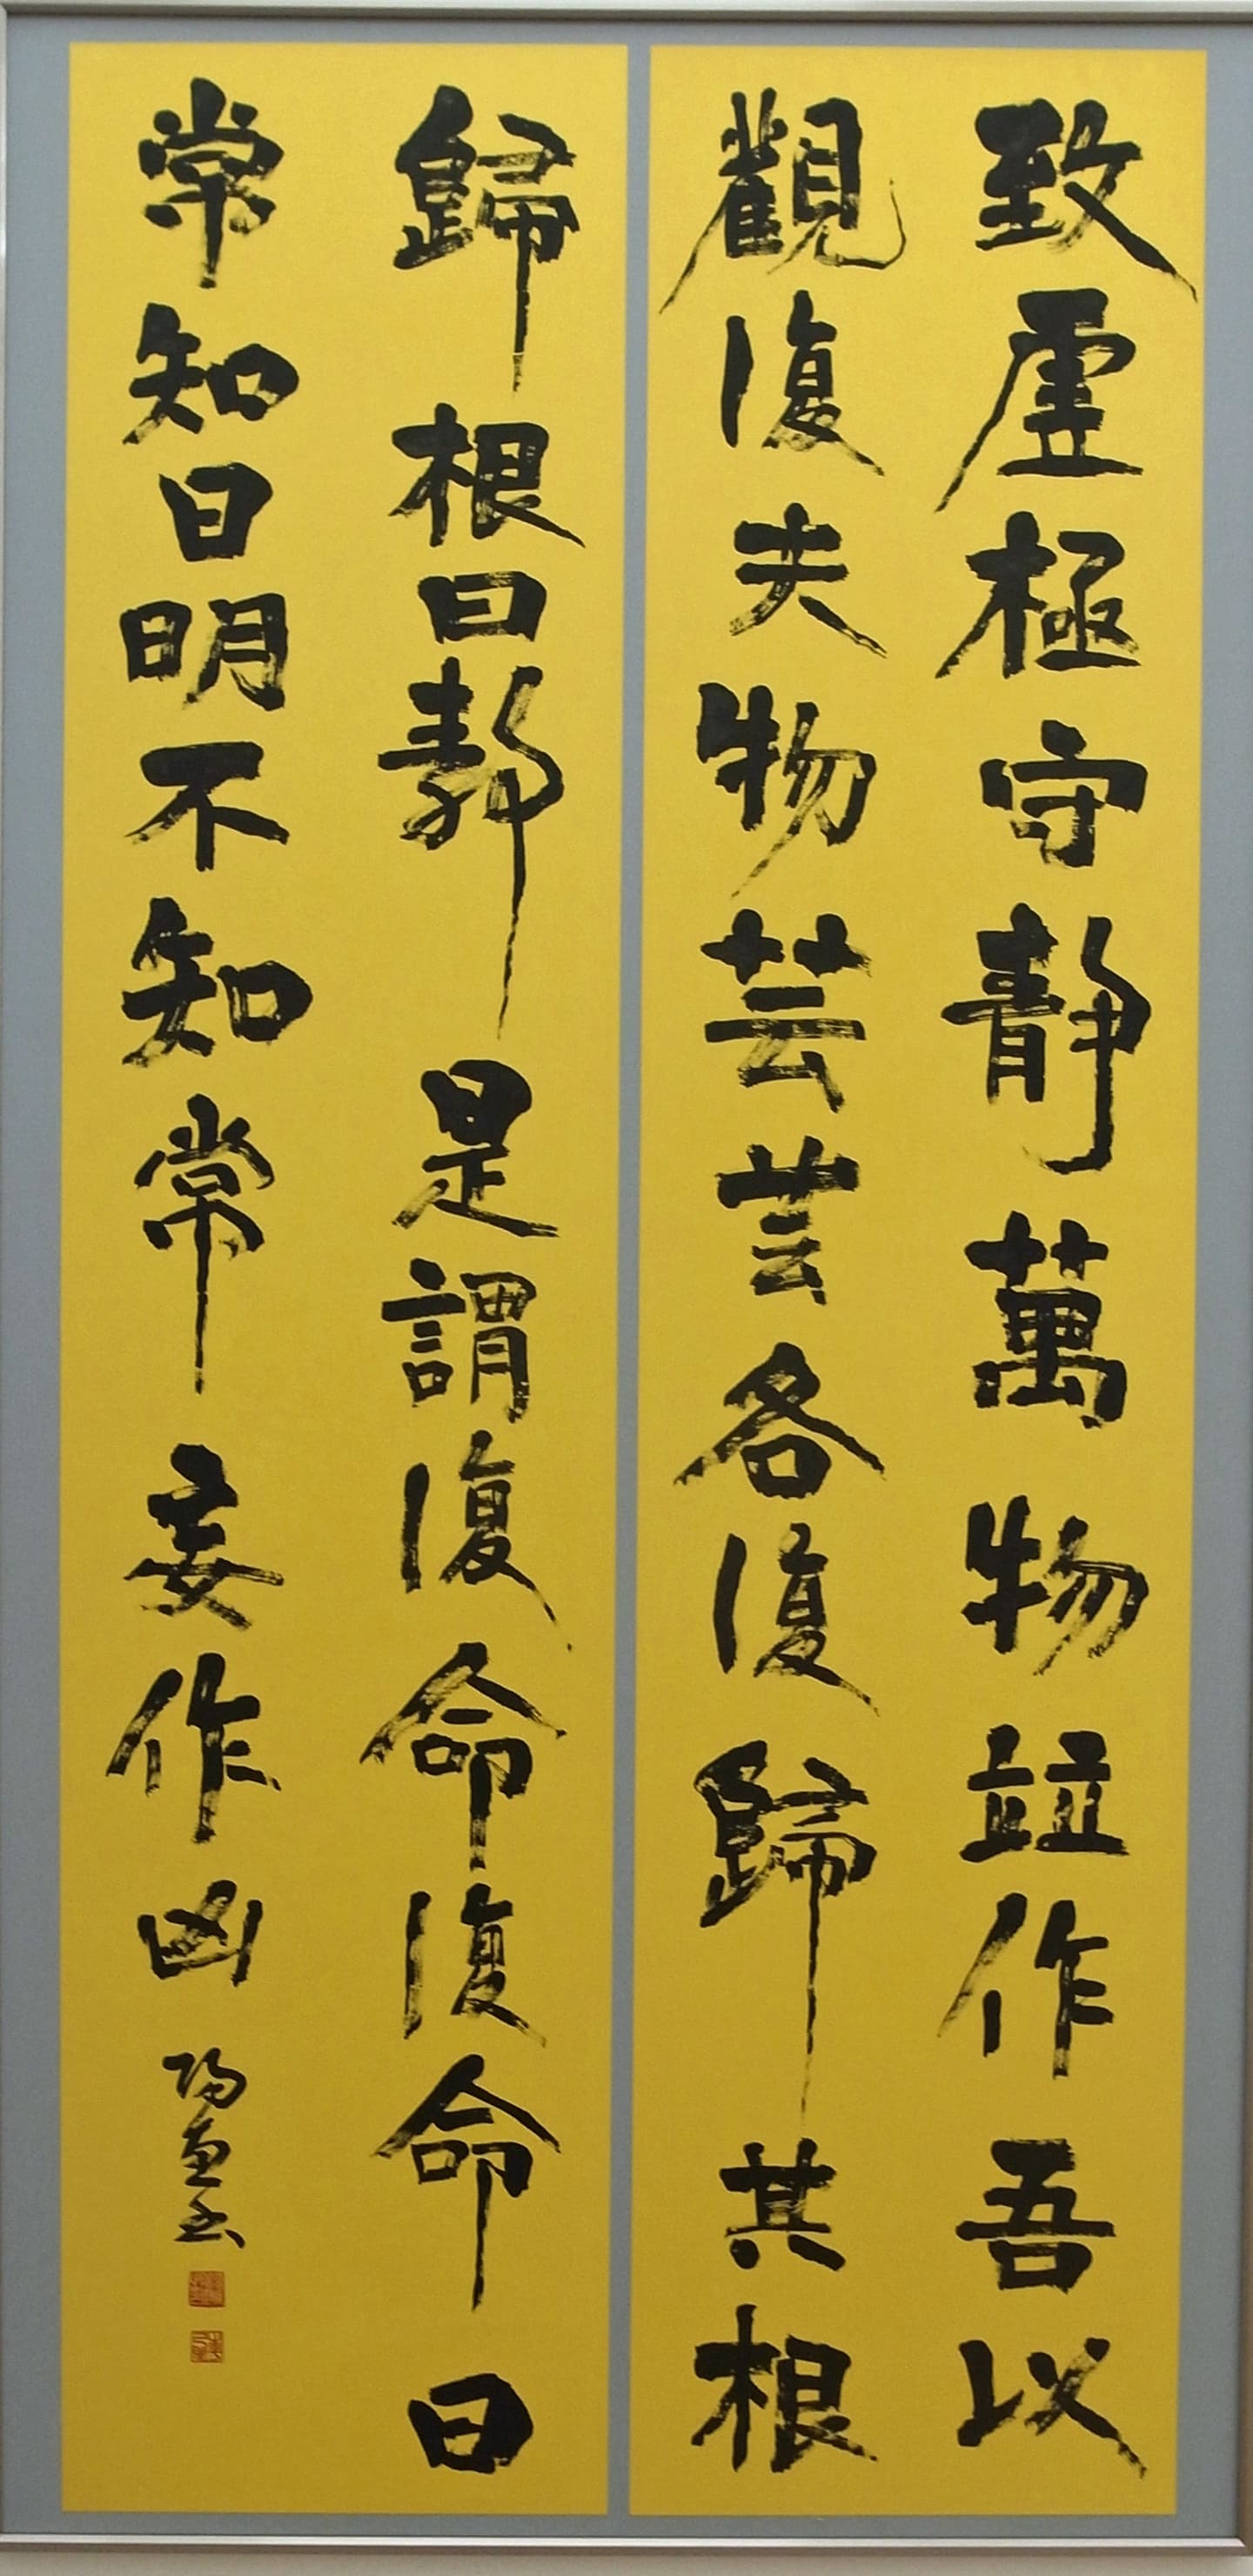 致虛極守静萬物竝作吾以
觀復夫物芸芸各復歸其根
歸根曰静是謂復命復命曰
常知曰明不知常妄作凶